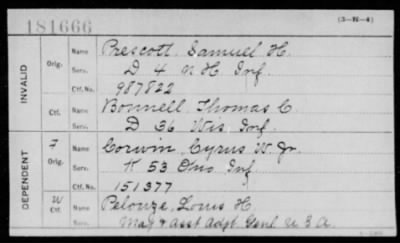 181666
(3—H—4)
INVALID
Orig. Name Prescott, Samuel H.
Serv. D 4 N H Inf.
Ctf. No. 987822
Ctf. Name Bonnell, Thomas C.
Serv. D 36 Wis. Inf.
DEPENDENT
F Orig. Name Corwin, Cyrus W. Jr.
Serv. K 53 Ohio Inf
Ctf. No. 151377
W Ctf. Name Pelouze, Louis H.
Serv. Maj & asst Adjt Genl U.S.A.